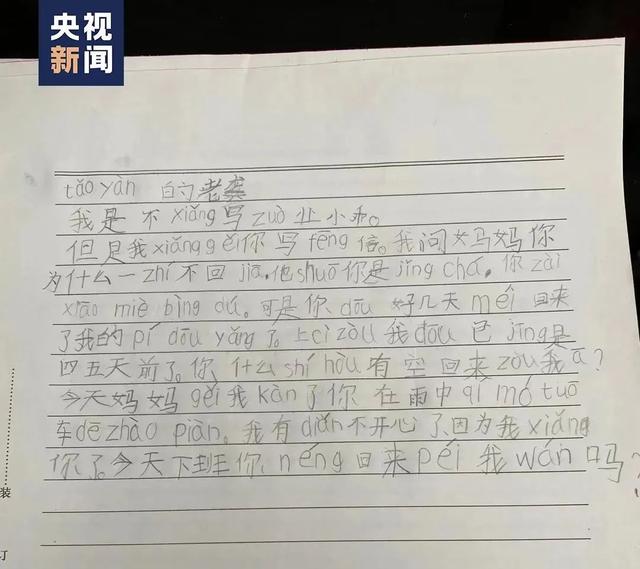 央视
新闻
tǎo yàn 的老龚
我是不xiǎng写zuò业小和。
但是我xiǎng gěi你写fēng信。我问妈妈你
为什么一zhí不回jiā，他shuō你是jǐng chá，你zài
xiāo miè bìng dú。可是你dōu好几天méi回来
了我的pí dōu yǎng了。上cì zòu我dōu已jīng是
四五天前了。你什么shí hòu有空回来zòu我ā？
今天妈妈gěi我kàn了你在雨中qí mó tuō
车dē zhào piàn。我有diǎn不开心了因为我xiǎng
你了。今天下班你néng回来péi我wán吗？
装
订